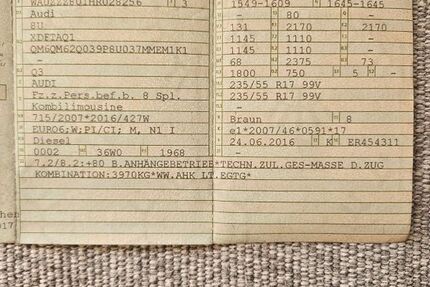 WAUZZZ8U1HR028256 3
Audi
8U
XDETAQ1
QM6QM62Q039P8U037MMEM1K1
-
Q3
AUDI
Fz.z.Pers.bef.b. 8 Spl.
Kombilimousine
715/2007*2016/427W
EURO6;W;PI/CI; M, N1 I
Diesel
0002 36W0 1968
7.2/8.2:+80 B.ANHÄNGEBETRIEB*TECHN.ZUL.GES-MASSE D.ZUG
KOMBINATION:3970KG*WW.AHK LT.EGTG*
1549-1609 1645-1645
- 80 -
131 2170 2170
1145 1110 -
1145 1110 -
68 2375 73
1800 750 5 -
235/55 R17 99V
235/55 R17 99V
-
Braun 8
e1*2007/46*0591*17
24.06.2016 K ER454311
-